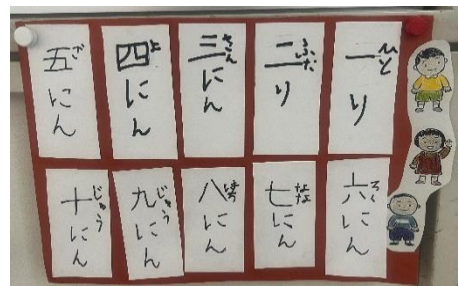 一り
ひと
二り
三にん
さん
四にん
よ
五にん
ご
六にん
ろく
七にん
なな
八にん
はち
九にん
十にん
じゅう